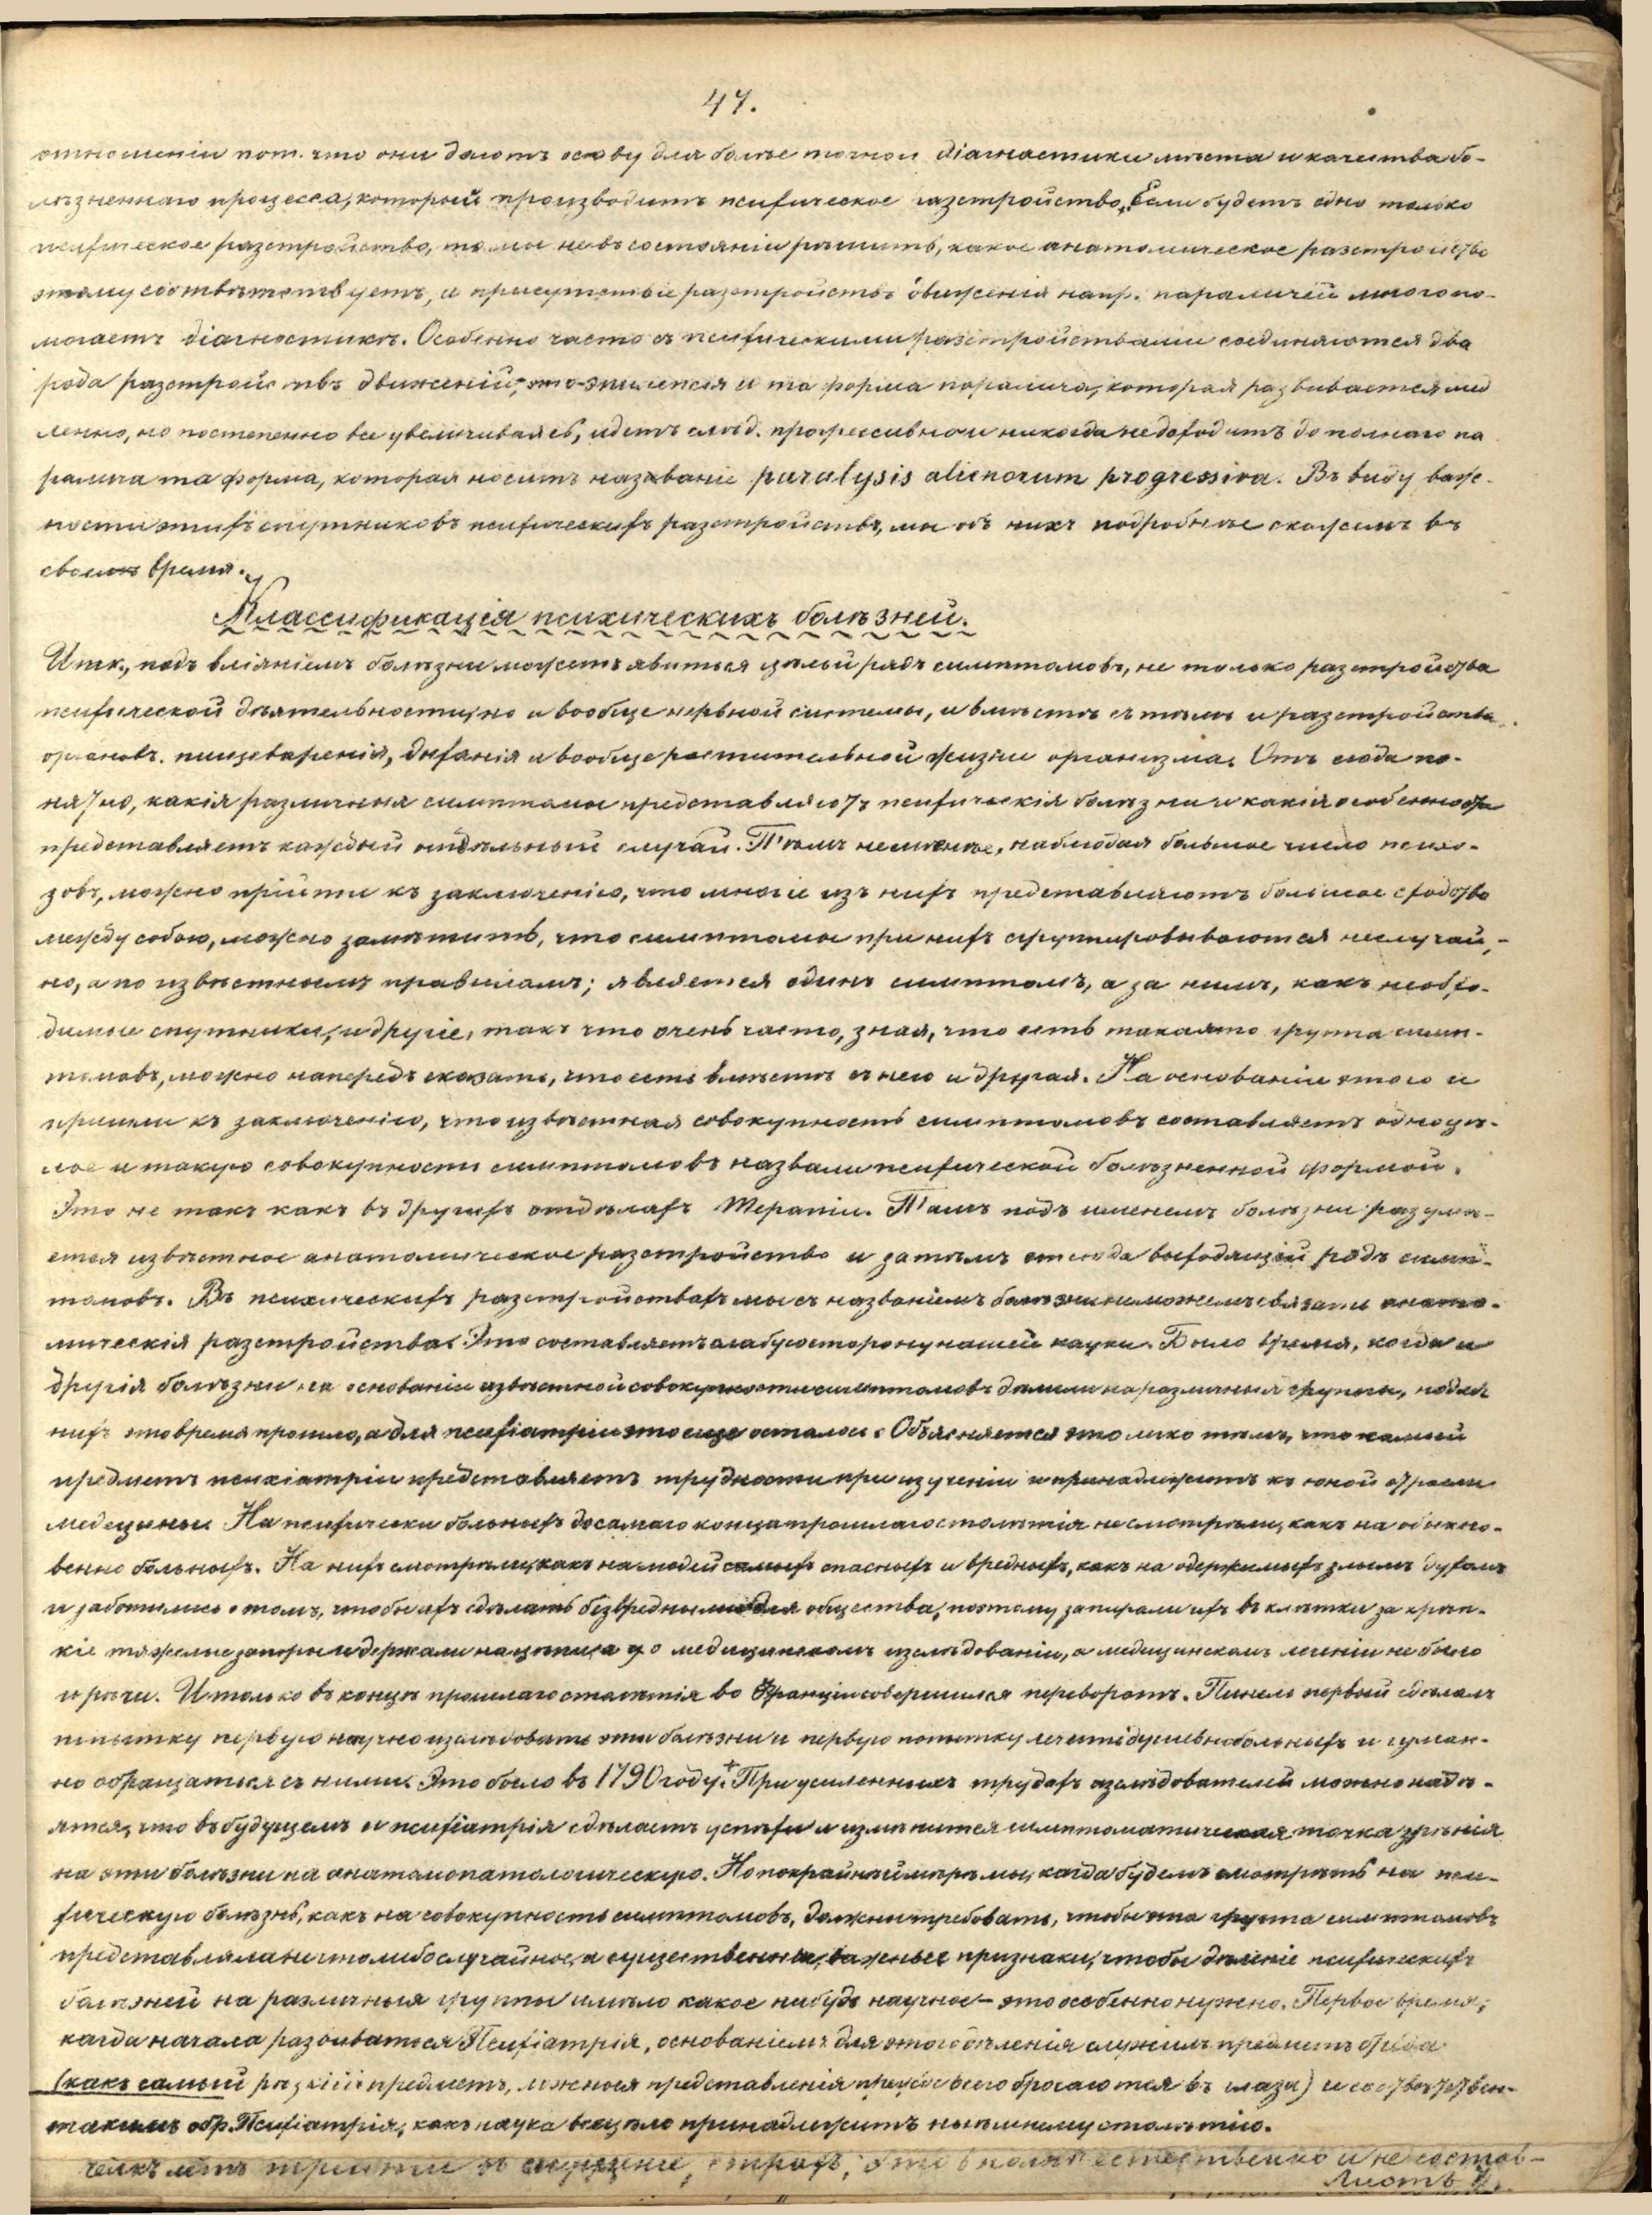 47.
отношеніи пот. что они даютъ основу для болѣе точной діагностики мѣста и качества бо-
лѣзненнаго процесса, который производитъ психическое разстройство. Если будетъ одно только
психическое разстройство, то мы не въ состояніи рѣшить, какое анатомическое разстройство
этому соотвѣтствуетъ, и присутствіе разстройствъ движенія напр. параличей много по-
могаетъ діагностикѣ. Особенно часто съ психическими разстройствами соединяются два
рода разстройствъ движеній, это-эпилепсія и та форма паралича, которая развивается мед
ленно, но постепенно все увеличиваясь, идетъ слѣд. прогрессивно и никогда не доходитъ до полнаго па
ралича та форма, которая носитъ названіе paralysis alienorum progressiva. Въ виду важ-
ности этихъ спутниковъ психическихъ разстройствъ, мы объ нихъ подробнѣе скажемъ въ
свое время.
Классификація психическихъ болѣзней.
Итк., подъ вліяніемъ болѣзни можетъ явиться цѣлый рядъ симптомовъ, не только разстройства
психической дѣятельности, но и вообще нервной системы, и вмѣстѣ съ тѣмъ и разстройства
органовъ пищеваренія, дыханія и вообще растительной жизни организма. Отъ сюда по-
нятно, какія различныя симптомы представляютъ психическія болѣзни и какія особенности
представляетъ каждый отдѣльный случай. Тѣмъ неменѣе, наблюдая большое число психо-
зовъ, можно прійти къ заключенію, что многіе изъ нихъ представляютъ большое сходство
между собою, можно замѣтить, что симптомы при нихъ сгруппировываются неслучай-
но, а по извѣстнымъ правиламъ; явлется одинъ симптомъ, а за нимъ, какъ необхо-
димые спутники, и другіе, такъ что очень часто, зная, что есть такаято группа симп-
томовъ, можно напередъ сказать, что есть вмѣстѣ съ нею и другая. На основаніи этого и
пришли къ заключенію, что извѣстная совокупность симптомовъ составляетъ одно цѣ-
лое и такую совокупность симптомовъ назвали психической болѣзненной формой.
Это не такъ какъ въ другихъ отдѣлахъ Терапіи. Тамъ подъ именемъ болѣзни разумѣ-
ется извѣстное анатомическое разстройство и затѣмъ отсюда выходящій рядъ симп-
томовъ. Въ психическихъ разстройствахъ мы съ названіемъ болѣзни неможемъ связать анато-
мическія разстройства. Это составляетъ слабую сторону нашей науки. Было время, когда и
другія болѣзни на основаніи извѣстной совокупности симптомовъ дѣлили на различныя группы, но для
нихъ это время прошло, а для психіатріи это еще осталось. Объясняется это лико тѣмъ, что самый
предметъ психіатріи представляетъ трудности при изученіи и принадлежитъ къ юной отрасли
медецины. На психически больныхъ до самаго конца прошлаго столѣтія не смотрѣли, какъ на обыкно-
венно больныхъ. На нихъ смотрѣли, какъ на людей самыхъ опасныхъ и вредныхъ, какъ на одержимыхъ злымъ духомъ
и заботились о томъ, чтобы ихъ сдѣлать безвредными для общества, поэтому запирали ихъ въ клѣтки за крѣп-
кіе тяжелые запоры и держали на цѣпи, а о медицинскомъ изслѣдованіи, о медицинскомъ леченіи не было
и рѣчи. И только въ концѣ прошлаго столѣтія во Франціи совершился переворотъ. Пинель первый сдѣлалъ
попытку первую научно изслѣдовать эти болѣзни и первую попытку лечить душевнобольныхъ и гуман-
но обращаться съ ними. Это было въ 1790 году.+ При усиленныхъ трудахъ изслѣдователей можно надѣ-
ятся, что въ будущемъ и психіатрія сдѣлаетъ успѣхи и измѣнится симптоматическая точка зрѣнія
на эти болѣзни на анатомопатологическую. Но покрайней мѣрѣ мы, когда будемъ смотрѣть на пси-
хическую болѣзнь, какъ на совокупность симптомовъ, должны требовать, чтобы эта группа симптомовъ
представляла не что либо случайное, а существенные, важные признаки, чтобы дѣленіе психическихъ
болѣзней на различныя группы имѣло какое нибудь научное – это особенно нужно. Первое время,
когда начала развиваться Психіатрія, основаніемъ для этого дѣленія служилъ предметъ бреда
(какъ самый предметъ, ложныя представленія прежде всего бросаются въ глаза) и соотвѣтствен-
такимъ обр. Психіатрія, какъ наука всецѣло принадлежитъ нынѣшнему столѣтію.
это вполнѣ естественно и не состав-
Листъ